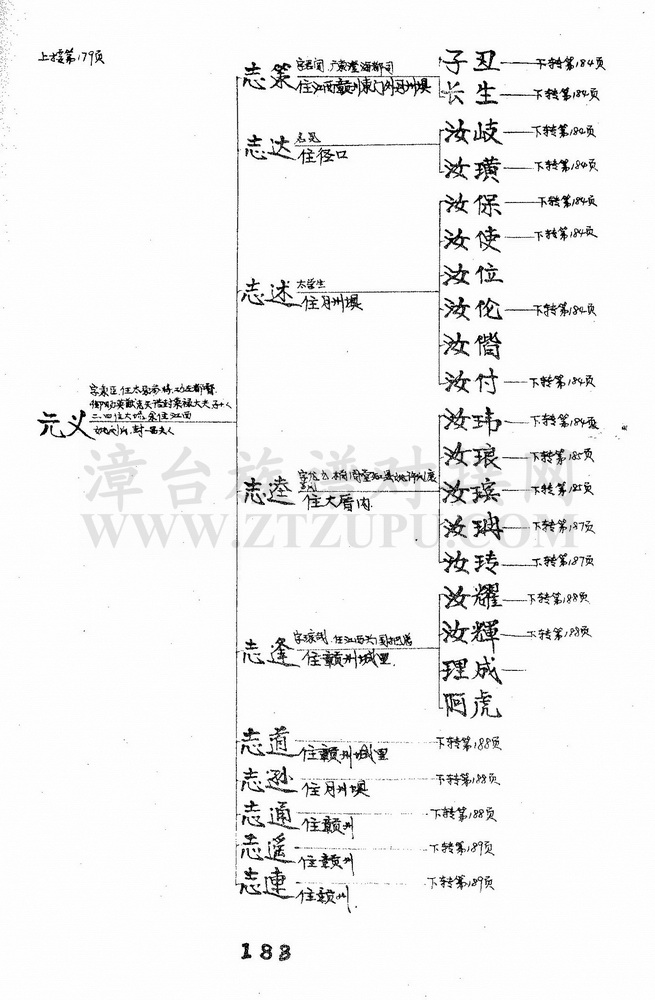 上接第179页
元义
二、四住大坵余住江西
志策
住江西赣州东门外月州坝
子丑 下转第184页
长生 下转第184页
志达
住径口
汝岐 下转第184页
汝璜 下转第184页
志述
太学生
住月州坝
汝保 下转第184页
汝使 下转第184页
汝位
汝伦 下转第184页
汝偕
汝付 下转第184页
志逵
住大厝内
汝玮 下转第184页
汝琅 下转第185页
汝瑸 下转第185页
汝珃 下转第187页
汝玲 下转第187页
志逢
住赣州城里
汝耀 下转第188页
汝輝 下转第188页
理成
阿虎
志道
住赣州城里
下转第188页
志逊
住月州坝
下转第188页
志通
住赣州
下转第188页
志遥
住赣州
下转第189页
志連
住赣州
下转第189页
漳台族谱对接网
WWW.ZTZUPU.COM
183